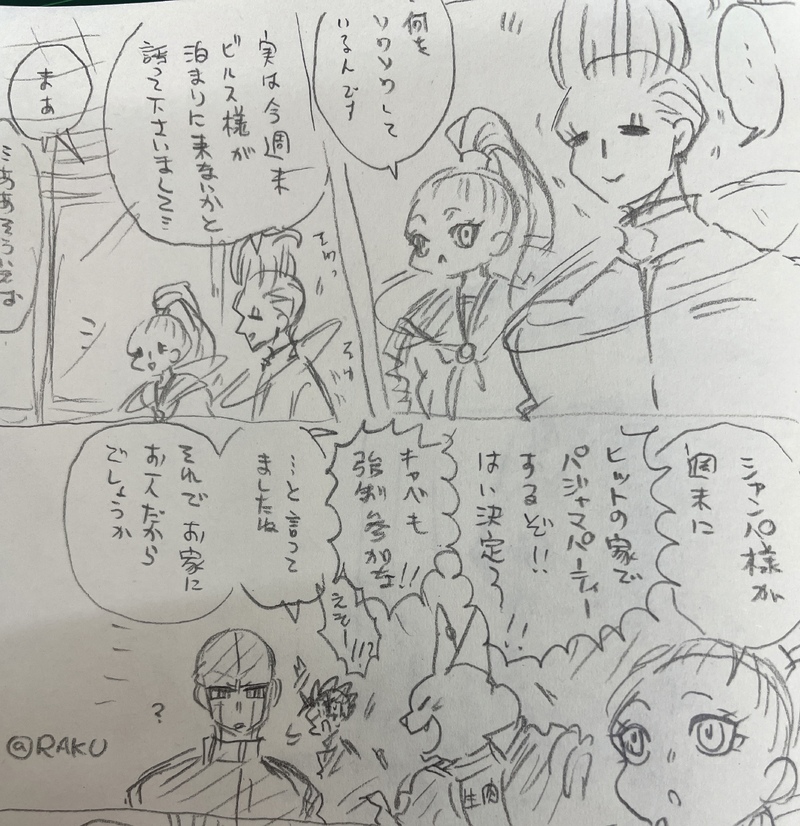 …
何を
ソワソワして
いるんです
実は今週末
ビルス様が
泊まりに来ないかと
誘って下さいまして…
まあ
ああそういえば
シャンパ様が
週末に
ヒットの家で
パジャマパーティー
するぞ!!
はい決定〜!!
キャベも
強制参加な!!
ええー!!?
…と言って
ましたね
それでお家に
お一人だから
でしょうか
?
生肉
@RAKU